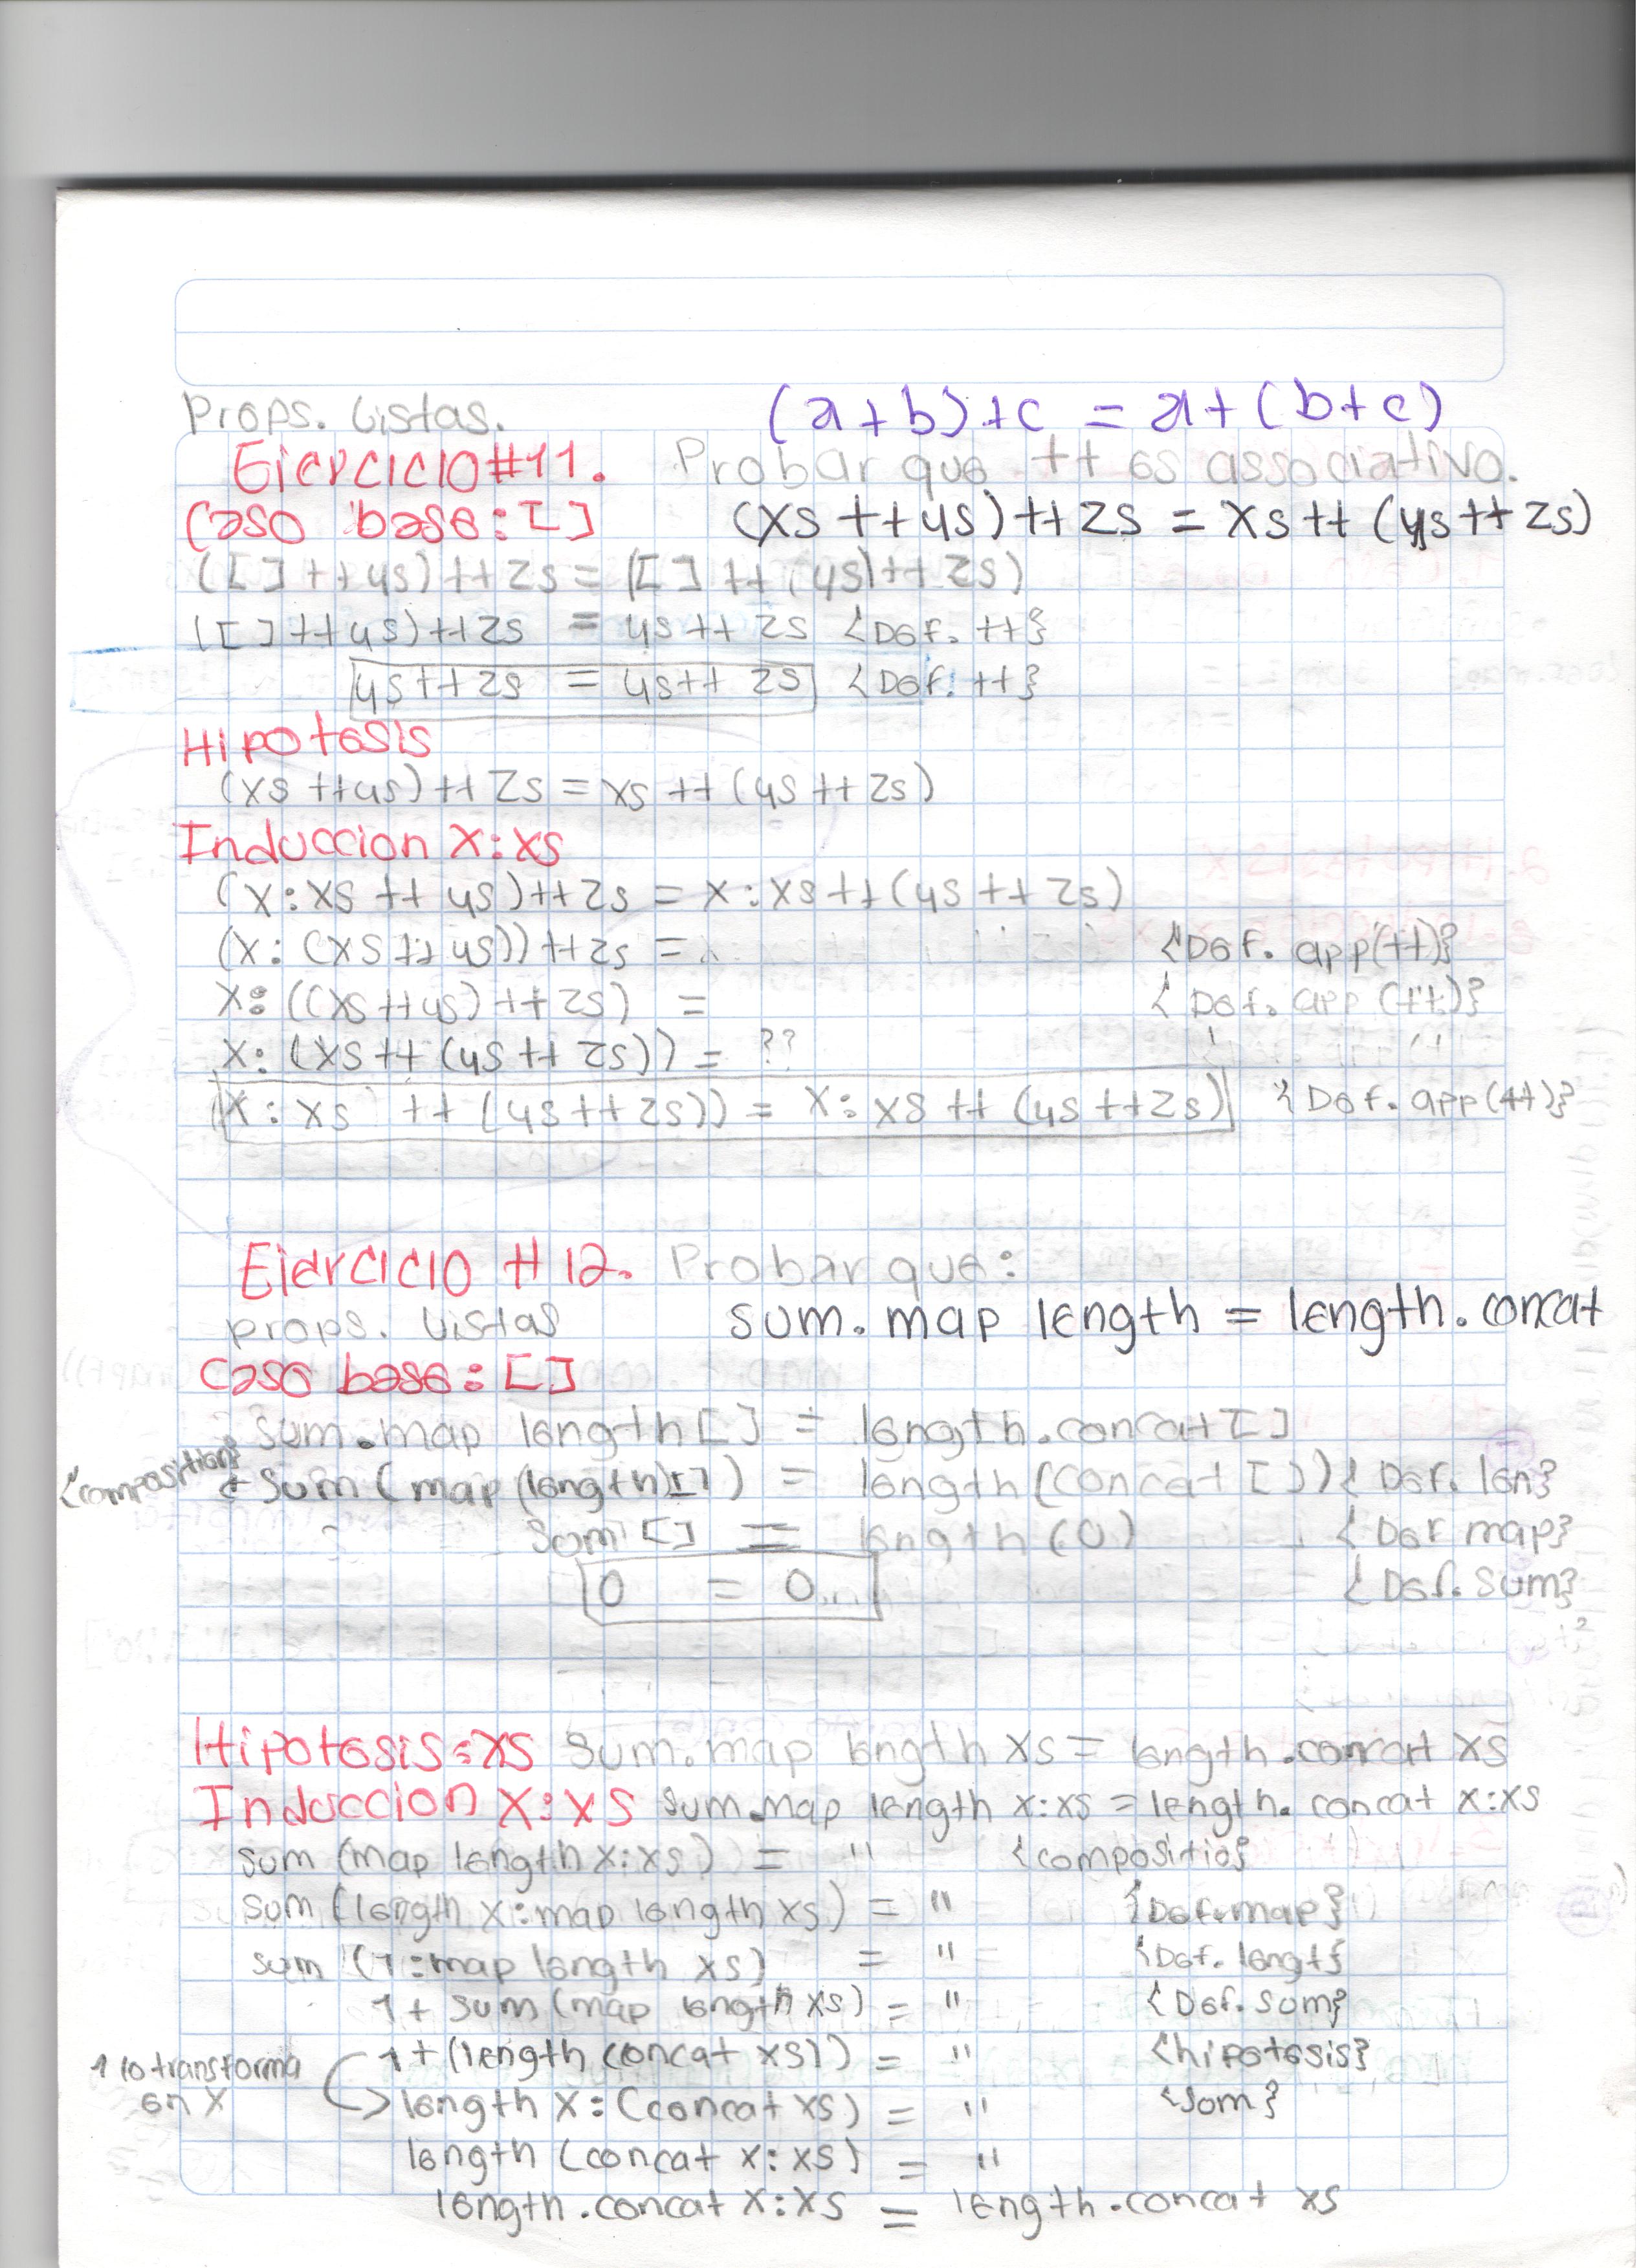 Props. Listas.
(a+b)+c = a+(b+c)
Ejercicio #11. Probar que ++ es associativo.
Caso base: []
(xs ++ ys) ++ zs = xs ++ (ys ++ zs)
([] ++ ys) ++ zs = [] ++ (ys) ++ zs)
([] ++ ys) ++ zs = ys ++ zs {Def. ++}
ys ++ zs = ys ++ zs {Def. ++}
Hipotesis
(xs ++ ys) ++ zs = xs ++ (ys ++ zs)
Induccion x:xs
(x:xs ++ ys) ++ zs = x:xs ++ (ys ++ zs)
(x: (xs ++ ys)) ++ zs = {Def. app(++)}
x: ((xs ++ ys) ++ zs) = {Def. app (++)}
x: (xs ++ (ys ++ zs)) = ??
(x: xs ++ (ys ++ zs)) = x: xs ++ (ys ++ zs) {Def. app(++)}
Ejercicio #12. Probar que:
props. Listas
sum. map length = length. concat
Caso base: []
sum. map length [] = length. concat []
{composition} sum (map (length) []) = length (concat []) {Def. len}
sum [] = length (0) {Def map}
0 = 0 {Def. sum}
Hipotesis: xs sum. map length xs = length. concat xs
Induccion x:xs sum. map length x:xs = length. concat x:xs
sum (map length x:xs) = " {compositio}
sum (length x: map length xs) = " {Def. map}
sum (1: map length xs) = " {Def. lengt}
1 + sum (map length xs) = " {Def. sum}
1 + (length (concat xs)) = " {hipotesis}
1 lo transforma en x
length x: (concat xs) = " {som}
length (concat x: xs) = "
length. concat x: xs = length. concat xs